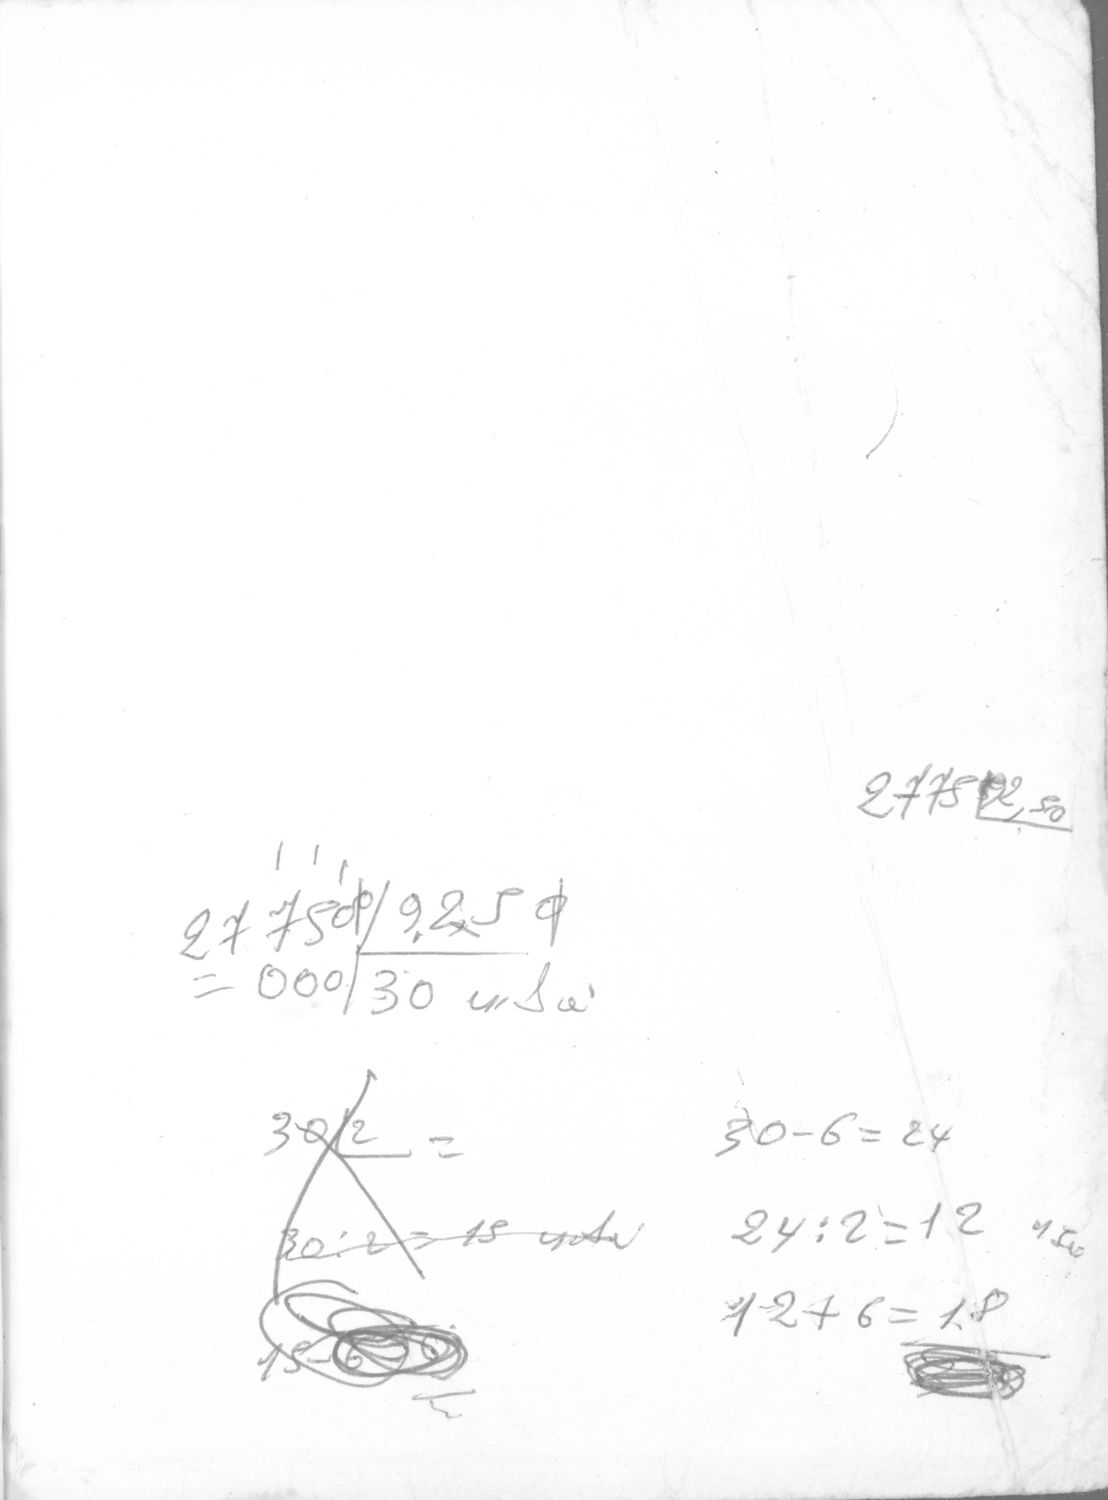 2775 92,50
27750 | 9,25
= 000 | 30
30 | 2 =
30 : 2 = 15
15 - 6
30 - 6 = 24
24 : 2 = 12
12 + 6 = 18